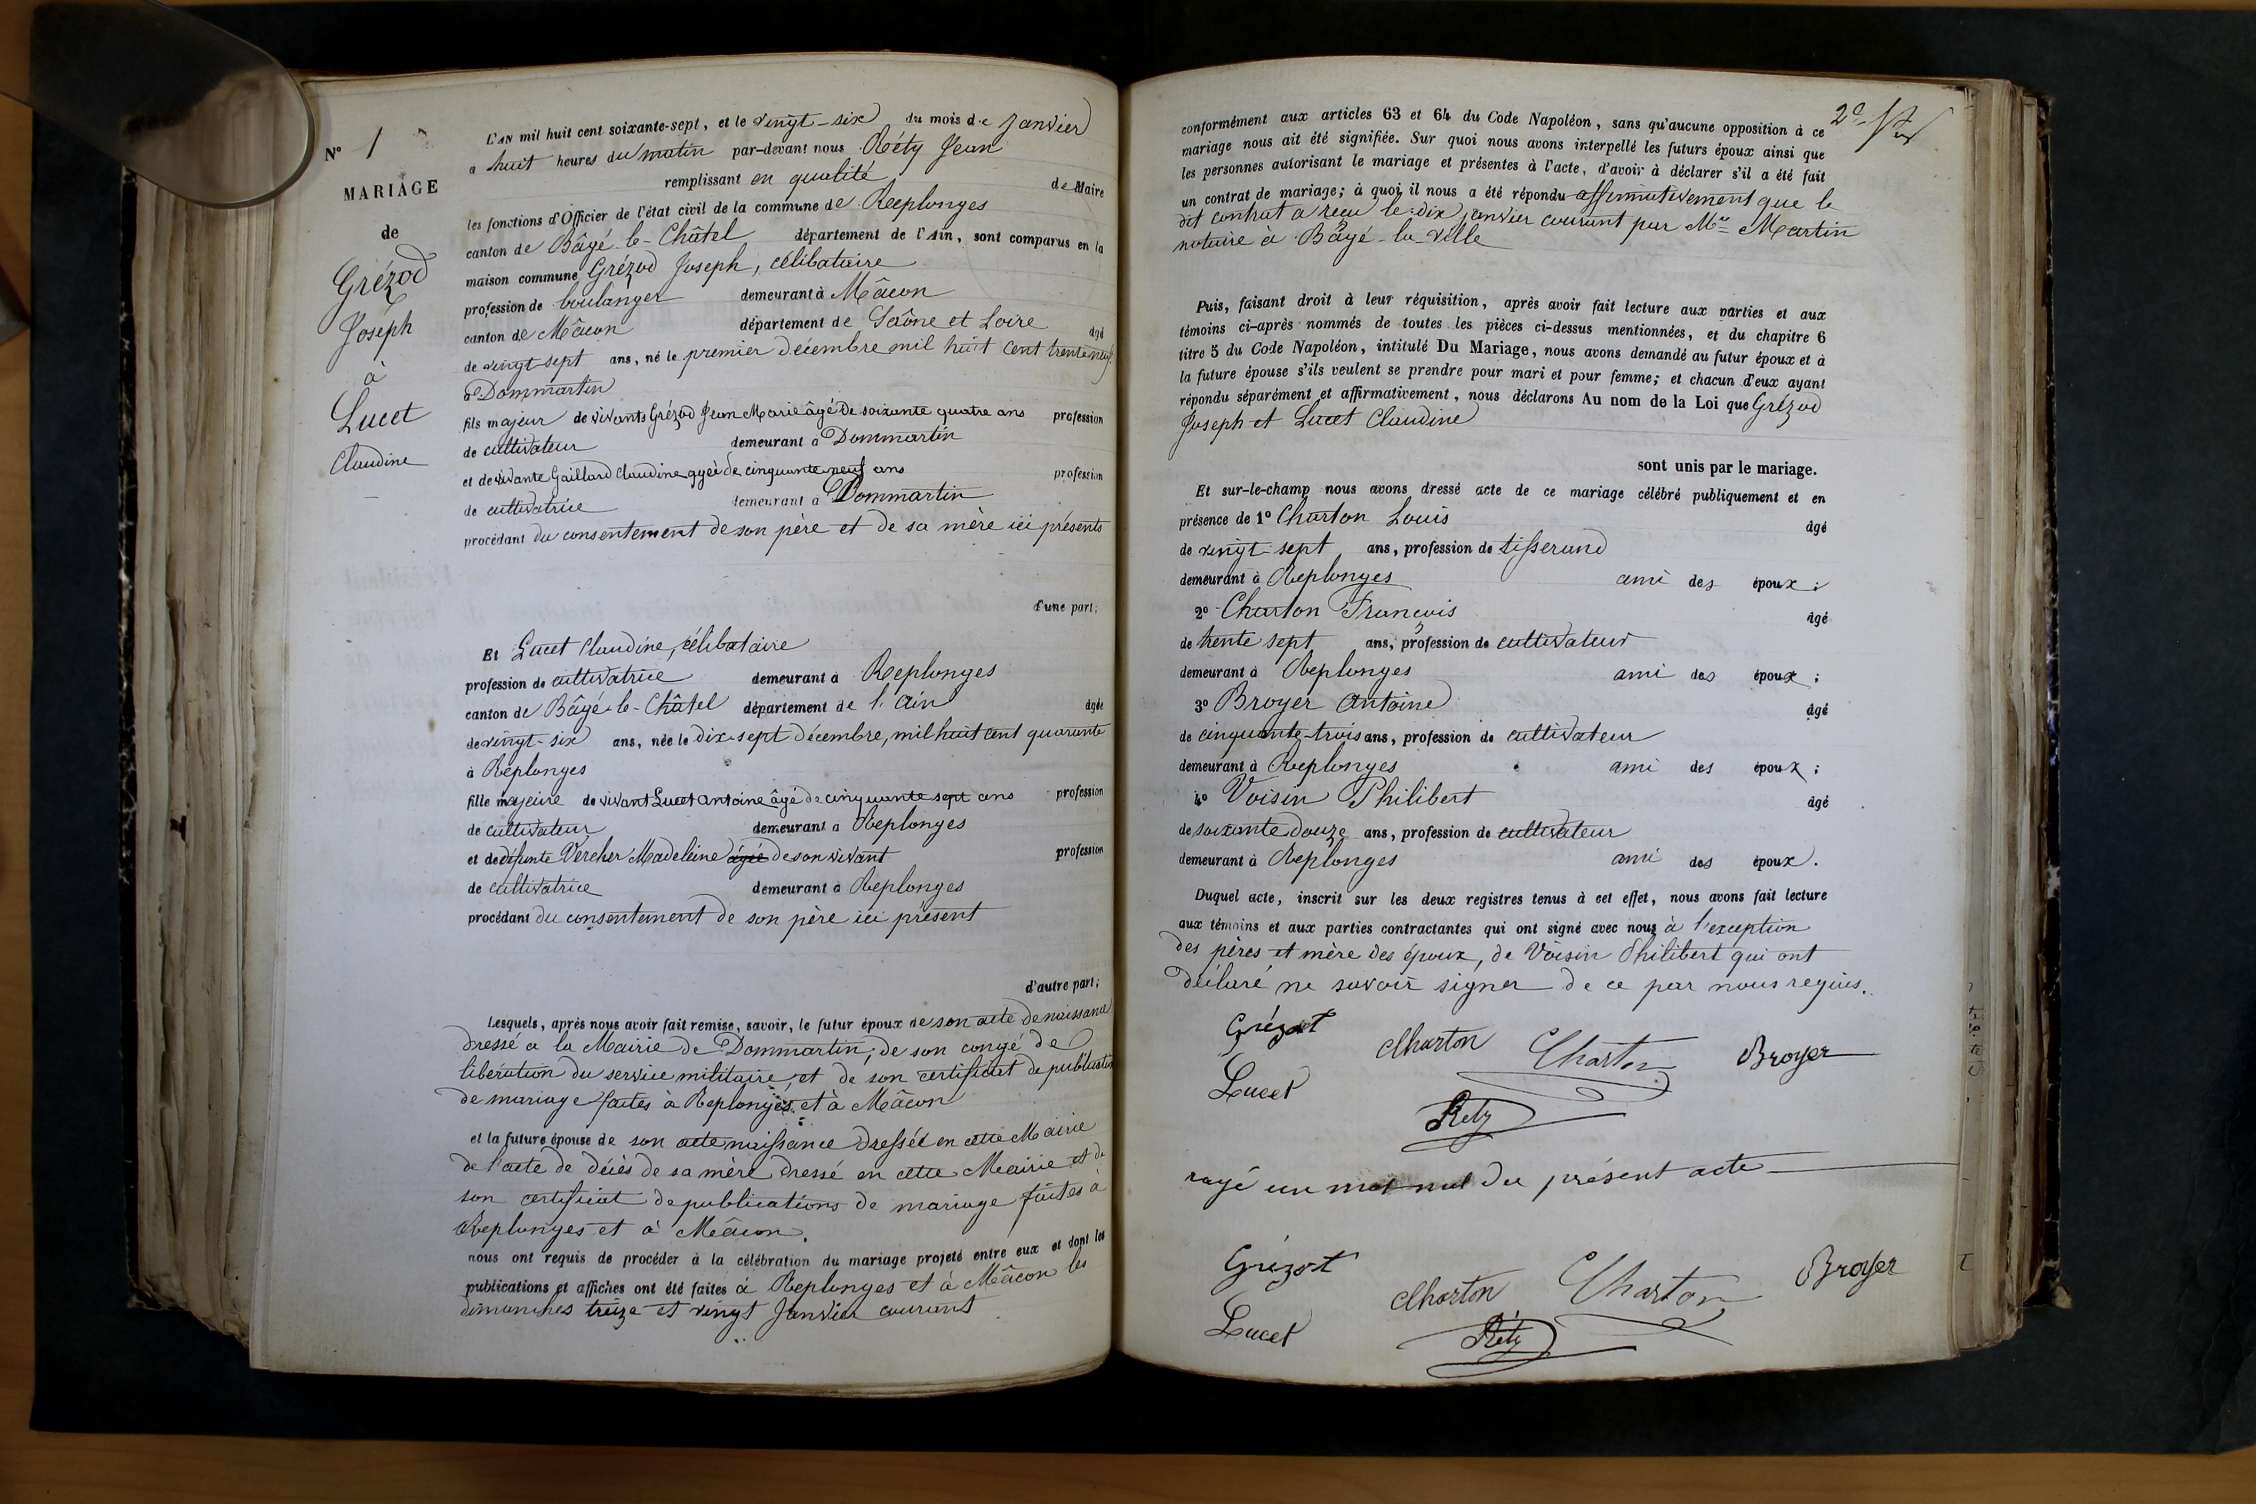 N° 1
MARIAGE
de
Grézod
Joseph
à
Lucet
Claudine
L'AN mil huit cent soixante-sept, et le vingt-six du mois de Janvier
a huit heures du matin par-devant nous Réty Jean
remplissant en qualité de Maire
les fonctions d'Officier de l'état civil de la commune de Replonges
canton de Bâgé-le-Châtel département de l'Ain, sont comparus en la
maison commune Grézod Joseph, célibataire
profession de boulanger demeurant à Mâcon
canton de Mâcon département de Saône et Loire âgé
de vingt-sept ans, né le premier décembre mil huit cent trente neuf
à Dommartin
fils majeur de vivants Grézod Jean Marie âgé de soixante quatre ans profession
de cultivateur demeurant à Dommartin
et de vivante Gaillard Claudine agée de cinquante neuf ans profession
de cultivatrice demeurant à Dommartin
procédant du consentement de son père et de sa mère ici présents
d'une part;
Et Lucet Claudine, célibataire
profession de cultivatrice demeurant à Replonges
canton de Bâgé-le-Châtel département de l'Ain âgée
de vingt-six ans, née le dix-sept décembre, mil huit cent quarante
à Replonges
fille majeure de vivant Lucet Antoine âgé de cinquante sept ans profession
de cultivateur demeurant à Replonges
et de défunte Vercher Madeleine âgée de son vivant profession
de cultivatrice demeurant à Replonges
procédant du consentement de son père ici présent
d'autre part;
Lesquels, après nous avoir fait remise, savoir, le futur époux de son acte de naissance
dressé à la Mairie de Dommartin, de son congé de
libération du service militaire, et de son certificat de publication
de mariage faites à Replonges et à Mâcon
et la future épouse de son acte naissance dressée en cette Mairie
de l'acte de décès de sa mère dressé en cette Mairie et de
son certificat de publications de mariage faites à
Replonges et à Mâcon.
nous ont requis de procéder à la célébration du mariage projeté entre eux et dont les
publications et affiches ont été faites à Replonges et à Mâcon les
dimanches treize et vingt Janvier courant
conformément aux articles 63 et 64 du Code Napoléon, sans qu'aucune opposition à ce
mariage nous ait été signifiée. Sur quoi nous avons interpellé les futurs époux ainsi que
les personnes autorisant le mariage et présentes à l'acte, d'avoir à déclarer s'il a été fait
un contrat de mariage; à quoi il nous a été répondu affirmativement que le
dit contrat a reçu le dix janvier courant par Me Martin
notaire à Bâgé-la-Ville
Puis, faisant droit à leur réquisition, après avoir fait lecture aux parties et aux
témoins ci-après nommés de toutes les pièces ci-dessus mentionnées, et du chapitre 6
titre 5 du Code Napoléon, intitulé Du Mariage, nous avons demandé au futur époux et à
la future épouse s'ils veulent se prendre pour mari et pour femme; et chacun d'eux ayant
répondu séparément et affirmativement, nous déclarons Au nom de la Loi que Grézod
Joseph et Lucet Claudine
sont unis par le mariage.
Et sur-le-champ nous avons dressé acte de ce mariage célébré publiquement et en
présence de 1° Charton Louis âgé
de vingt-sept ans, profession de tisserand
demeurant à Replonges ami des époux;
2° Charton François âgé
de trente sept ans, profession de cultivateur
demeurant à Replonges ami des époux;
3° Broyer Antoine âgé
de cinquante-trois ans, profession de cultivateur
demeurant à Replonges ami des époux;
4° Voisin Philibert âgé
de soixante douze ans, profession de cultivateur
demeurant à Replonges ami des époux.
Duquel acte, inscrit sur les deux registres tenus à cet effet, nous avons fait lecture
aux témoins et aux parties contractantes qui ont signé avec nous à l'exception
des pères et mère des époux, de Voisin Philibert qui ont
déclaré ne savoir signer de ce par nous requis.
Grézot Charton Charton Broyer
Lucet
Rety
rayé un mot nul du présent acte
Grézot Charton Charton Broyer
Lucet Réty